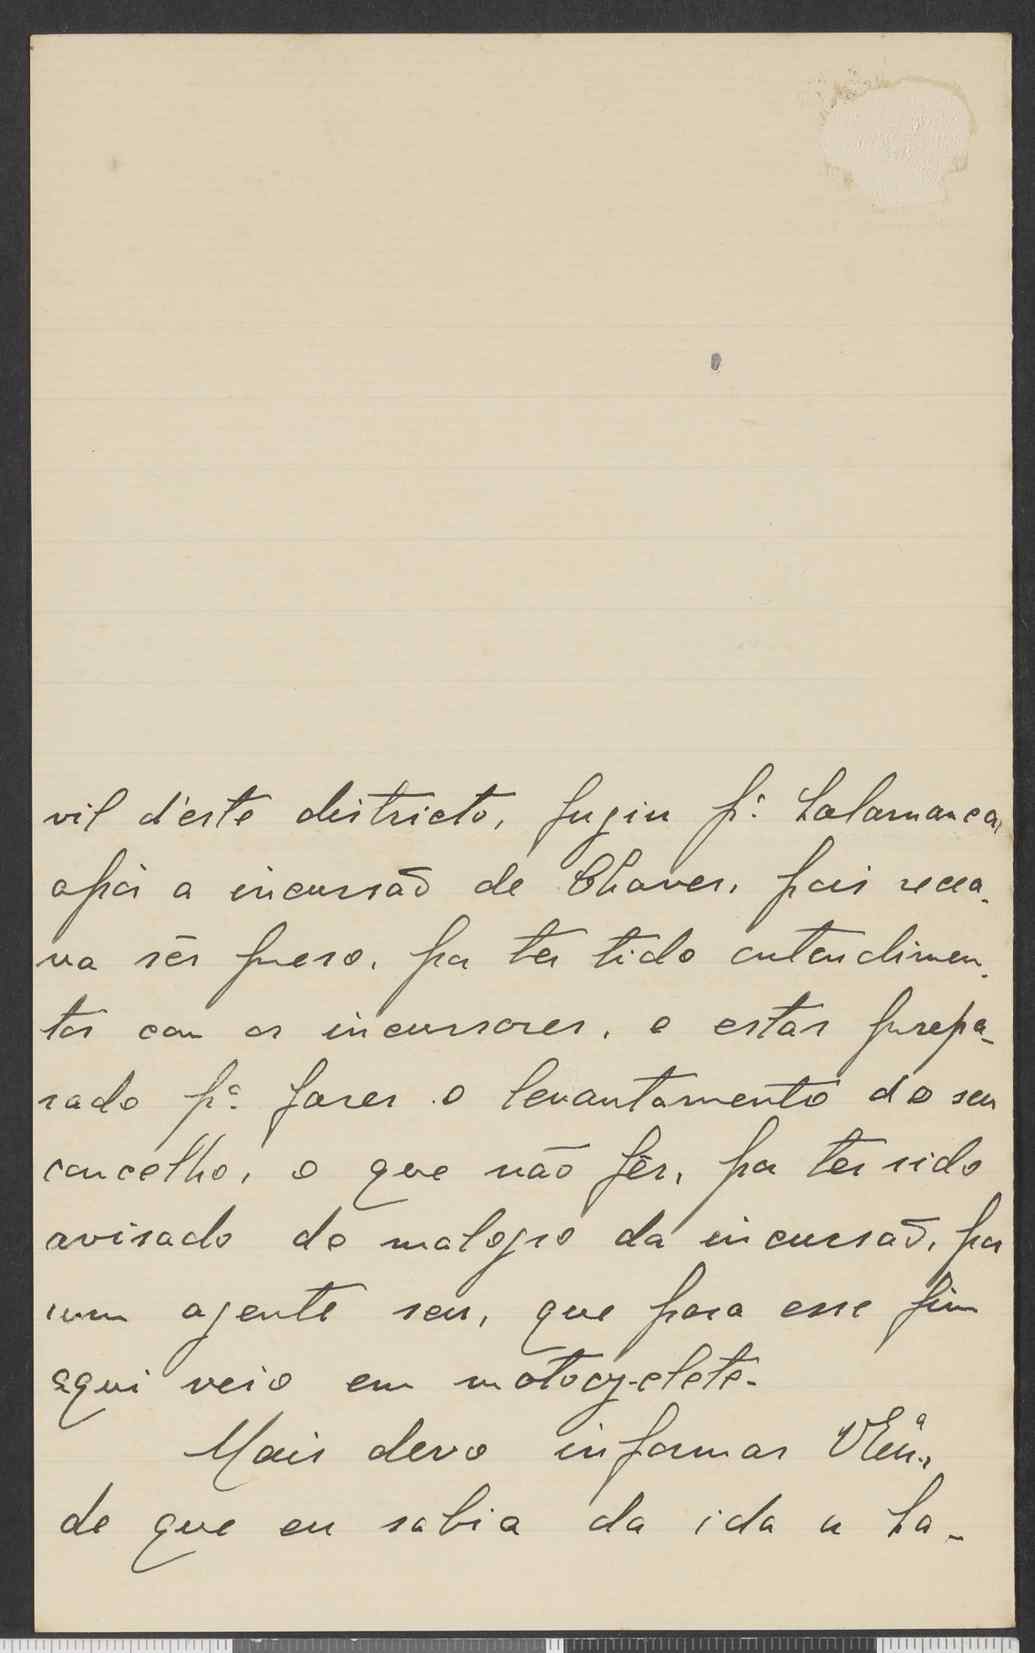 vil d'este districto, fugiu pª. Salamanca,
após a incursão de Chaves, pois recea-
va sêr preso, por ter tido entendimen-
tos com os incursores, e estar prepa-
rado pª. fazer o levantamento do seu
concelho, o que não fêz, por ter sido
avisado do malogro da incursão, por
um agente seu, que para esse fim
aqui veio em motocyclete.
Mais devo informar VExª.,
de que eu sabia da ida a Sa-